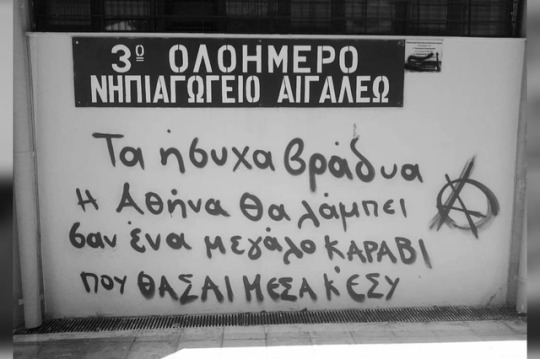 3º ΟΛΟΗΜΕΡΟ
ΝΗΠΙΑΓΩΓΕΙΟ ΑΙΓΑΛΕΩ
Τα ήσυχα βράδυα
Η Αθήνα θα λάμπει
σαν ένα μεγάλο ΚΑΡΑΒΙ
ΠΟΥ ΘΑΣΑΙ ΜΕΣΑ Κ' ΕΣΥ